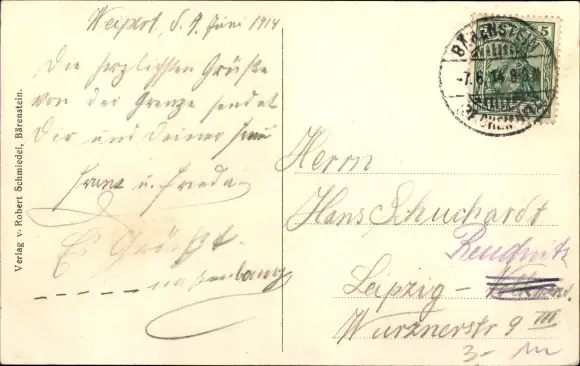 Weipert, d. 7. Juni 1914
Die herzlichsten Grüße
von der Grenze sendet
Dir und Deiner Frau
Franz u. Frieda
E. Grüßt
Verlag v. Robert Schmiedel, Bärenstein.
5
BÄRENSTEIN
-7.6.14. 8-9 N
Herrn
Hans Schuchardt
Reudnitz
Leipzig –
Wurznerstr 9 III
3-